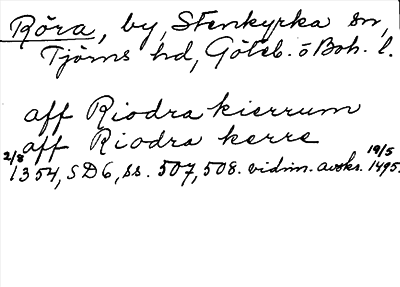 Röra, by, Stenkyrka sn,
Tjörns hd, Göteb. o Boh. l.
aff Riodra kierrum
aff Riodra kerre
2/8 1354, SD6, ss. 507, 508. vidim. avskr. 19/5 1495.